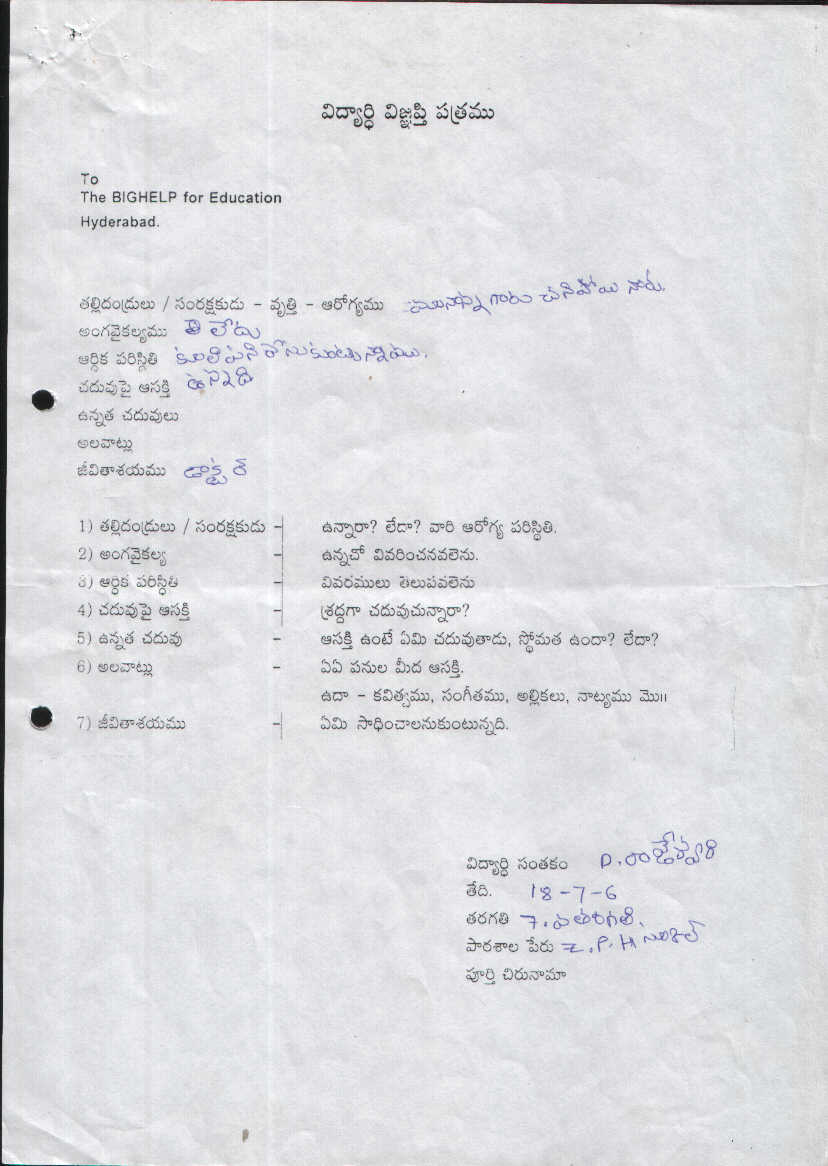 విద్యార్థి విజ్ఞప్తి పత్రము
To
The BIGHELP for Education
Hyderabad.
తల్లిదండ్రులు / సంరక్షకుడు - వృత్తి - ఆరోగ్యము మానాన్న గారు చనిపోయి నారు.
అంగవైకల్యము లేదు
ఆర్థిక పరిస్థితి కూలిపని చేసుకుంటున్నాము.
చదువుపై ఆసక్తి ఉన్నది
ఉన్నత చదువులు
అలవాట్లు
జీవితాశయము డాక్టర్
1) తల్లిదండ్రులు / సంరక్షకుడు - ఉన్నారా? లేదా? వారి ఆరోగ్య పరిస్థితి.
2) అంగవైకల్య - ఉన్నచో వివరించనవలెను.
3) ఆర్థిక పరిస్థితి - వివరములు తెలుపవలెను
4) చదువుపై ఆసక్తి - శ్రద్దగా చదువుచున్నారా?
5) ఉన్నత చదువు - ఆసక్తి ఉంటే ఏమి చదువుతాడు, స్థోమత ఉందా? లేదా?
6) అలవాట్లు - ఏఏ పనుల మీద ఆసక్తి.
ఉదా - కవిత్వము, సంగీతము, అల్లికలు, నాట్యము మొ॥
7) జీవితాశయము - ఏమి సాధించాలనుకుంటున్నది.
విద్యార్థి సంతకం P.
తేది. 18-7-6
తరగతి 7.వ తరగతి.
పాఠశాల పేరు Z.P.H
పూర్తి చిరునామా